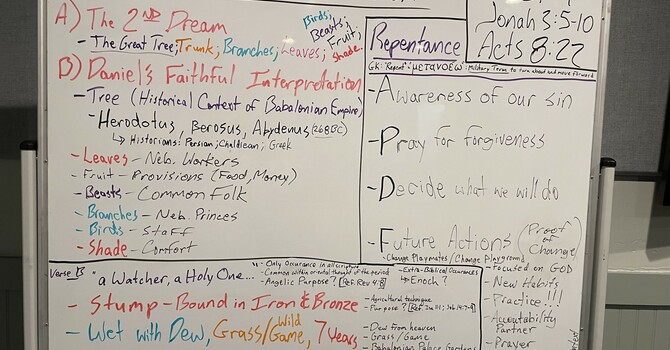 A) The 2ND Dream
- The Great Tree; Trunk; Branches; Leaves; Fruit; Shade.
Birds;
Beasts;
B) Daniel's Faithful Interpretation
- Tree (Historical Context of Babalonian Empire)
- Herodotus, Berosus, Abydenus (268BC)
↳ Historians: Persian; Chaldean; Greek
- Leaves - Neb. Workers
- Fruit - Provisions (Food, Money)
- Beasts - Common Folk
- Branches - Neb. Princes
- Birds - Staff
- Shade - Comfort
Jonah 3:5-10
Acts 8:22
Repentance
GK: "Repent": μετανοέω: Military Term to turn about and move forward
- Awareness of our sin
- Pray for forgiveness
- Decide what we will do
- Future Actions (Proof of Change)
- Change Playmates/Change Playground
- Focused on GOD
- New Habits
- Practice!!!
- Accountability Partner
- Prayer
Verse 13
"a Watcher, a Holy One...
- Only Occurance in all scripture
- Common within oriental thought of the period
- Angelic Purpose? [Ref. Rev 4:8]
- Extra-Biblical Occurances
↳ Enoch?
- Stump - Bound in Iron & Bronze
- Agricultural technique
- Purpose?
- Wet with Dew, Grass/Wild Game, 7 Years
- Dew from heaven
- Grass/Game
- Babalonian Palace Gardens